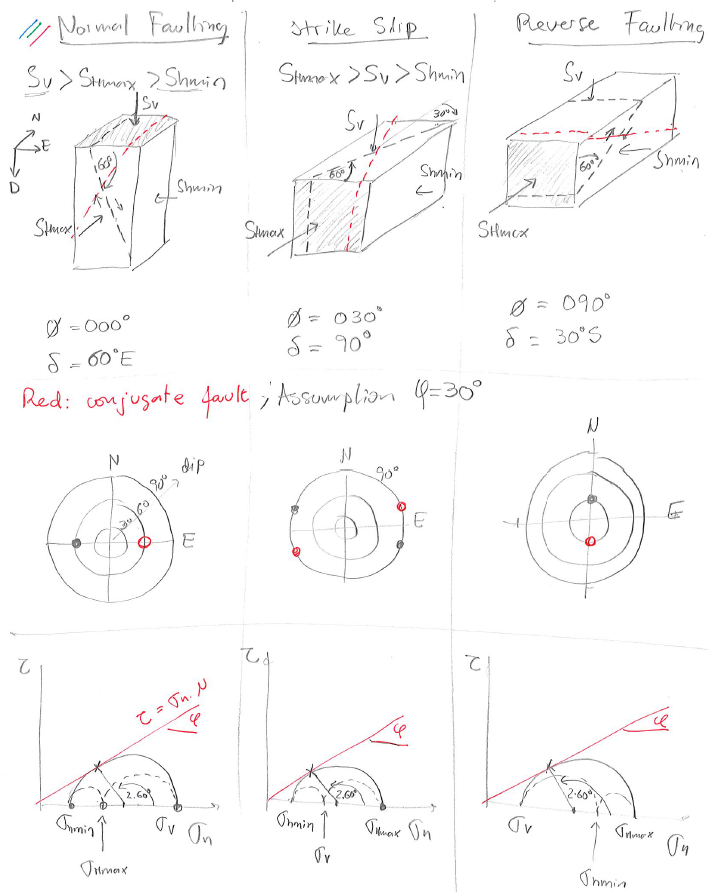 Normal Faulting
Sv > SHmax > Shmin
Sv
N
E
D
60°
Shmin
SHmax
ø = 000°
δ = 60°E
Strike Slip
SHmax > Sv > Shmin
30°
Sv
60°
Shmin
SHmax
ø = 030°
δ = 90°
Reverse Faulting
Sv
60°
Shmin
SHmax
ø = 090°
δ = 30°S
Red: conjugate fault ; Assumption φ=30°
N
90°
dip
30
60
E
N
90°
E
N
E
τ
τ = σn.µ
φ
2.60°
σhmin
σv
σn
σHmax
τ
φ
2.60°
σhmin
σHmax
σn
σv
τ
φ
2.60°
σv
σHmax
σn
σhmin